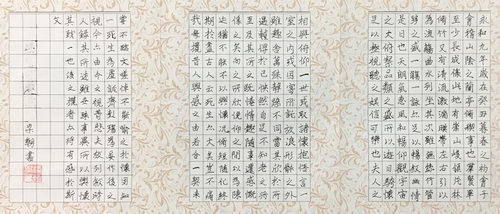 永和九年歲在癸丑暮春之初會于
會稽山陰之蘭亭脩稧事也羣賢畢
至少長咸集此地有崇山峻領茂林
脩竹又有清流激湍暎帶左右引以
為流觴曲水列坐其次雖無絲竹管
弦之盛一觴一詠亦足以暢敘幽情
是日也天朗氣清惠風和暢仰觀宇宙
之大俯察品類之盛所以遊目騁懷
足以極視聽之娛信可樂也夫人之
相與俯仰一世或取諸懷抱悟言一
室之內或因寄所託放浪形骸之外
雖趣舍萬殊靜躁不同當其欣於所
遇蹔得於己怏然自足不知老之將
至及其所之既惓情隨事遷感慨
係之矣向之所欣俛仰之間以為陳
迹猶不能不以之興懷況脩短隨化終
期於盡古人云死生亦大矣豈不痛
哉每攬昔人興感之由若合一契未
嘗不臨文嗟悼不能喻之於懷固知
一死生為虛誕齊彭殤為妄作後之
視今亦由今之視昔悲夫故列敘時
人錄其所述雖世殊事異所以興懷
其致一也後之攬者亦將有感於斯
文
書